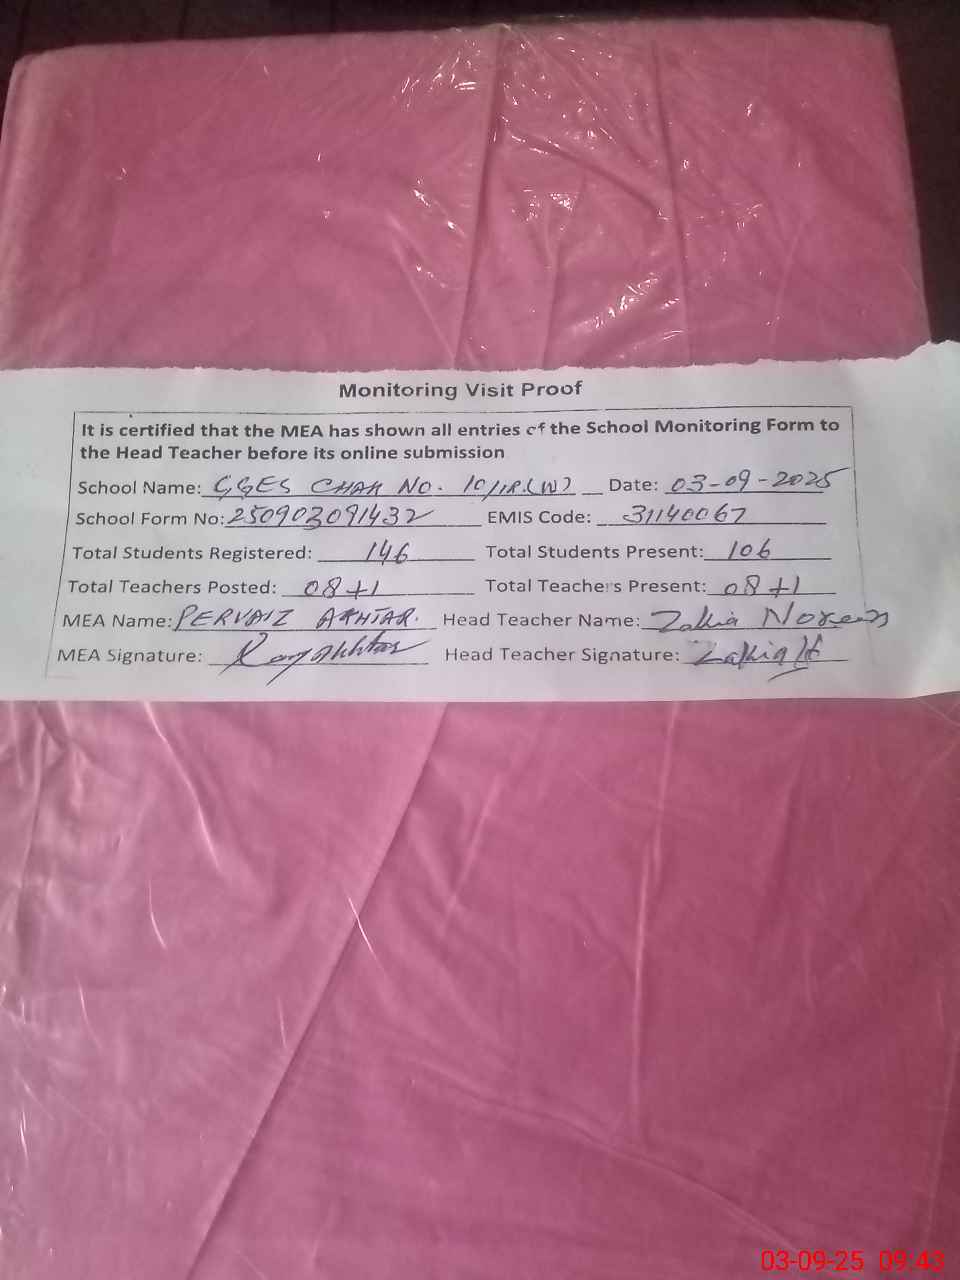 Monitoring Visit Proof
It is certified that the MEA has shown all entries of the School Monitoring Form to
the Head Teacher before its online submission
School Name: GGES CHAK NO. 10/1R.(W) Date: 03-09-2025
School Form No: 250903091432 EMIS Code: 31140067
Total Students Registered: 146 Total Students Present: 106
Total Teachers Posted: 08+1 Total Teachers Present: 08+1
MEA Name: PERVAIZ AKHTAR. Head Teacher Name: Zakia Noreen
MEA Signature: Head Teacher Signature: Zakia
03-09-25 09:43